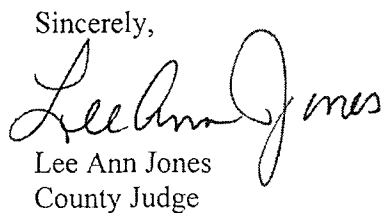 Sincerely,
Lee Ann Jones
Lee Ann Jones
County Judge